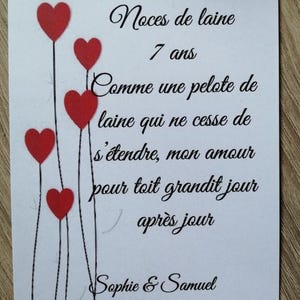 Noces de laine
7 ans
Comme une pelote de
laine qui ne cesse de
s'étendre, mon amour
pour toit grandit jour
après jour
Sophie & Samuel